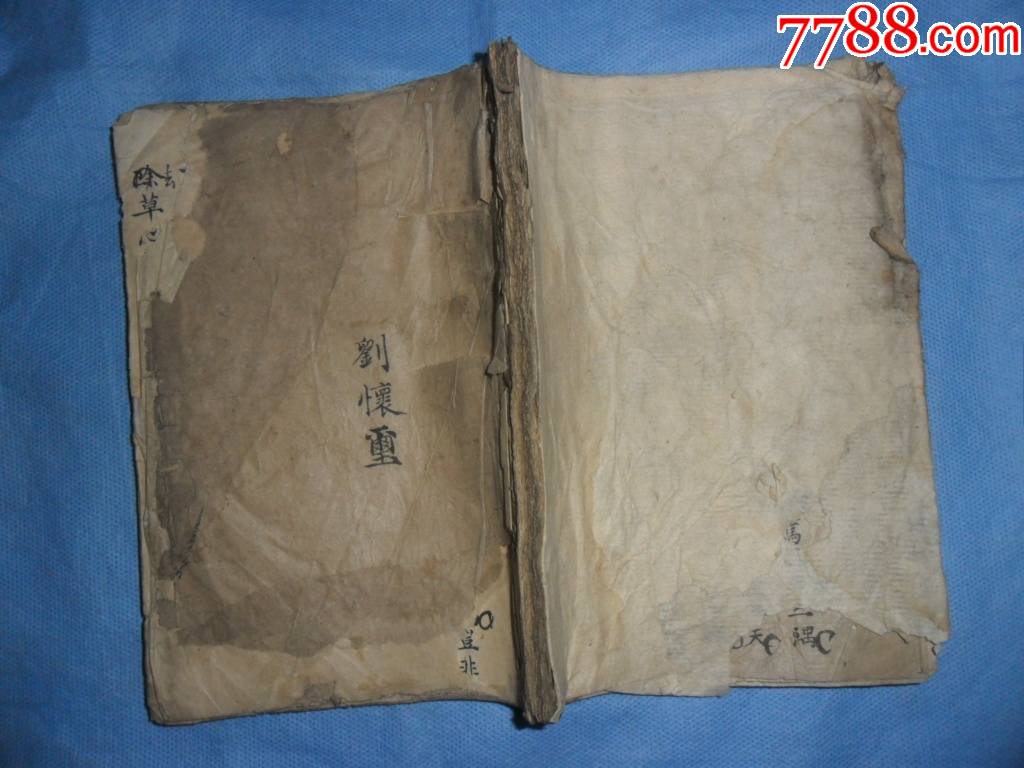 7788.com
除草心
劉懷璽
豈非
馬
三隅
天